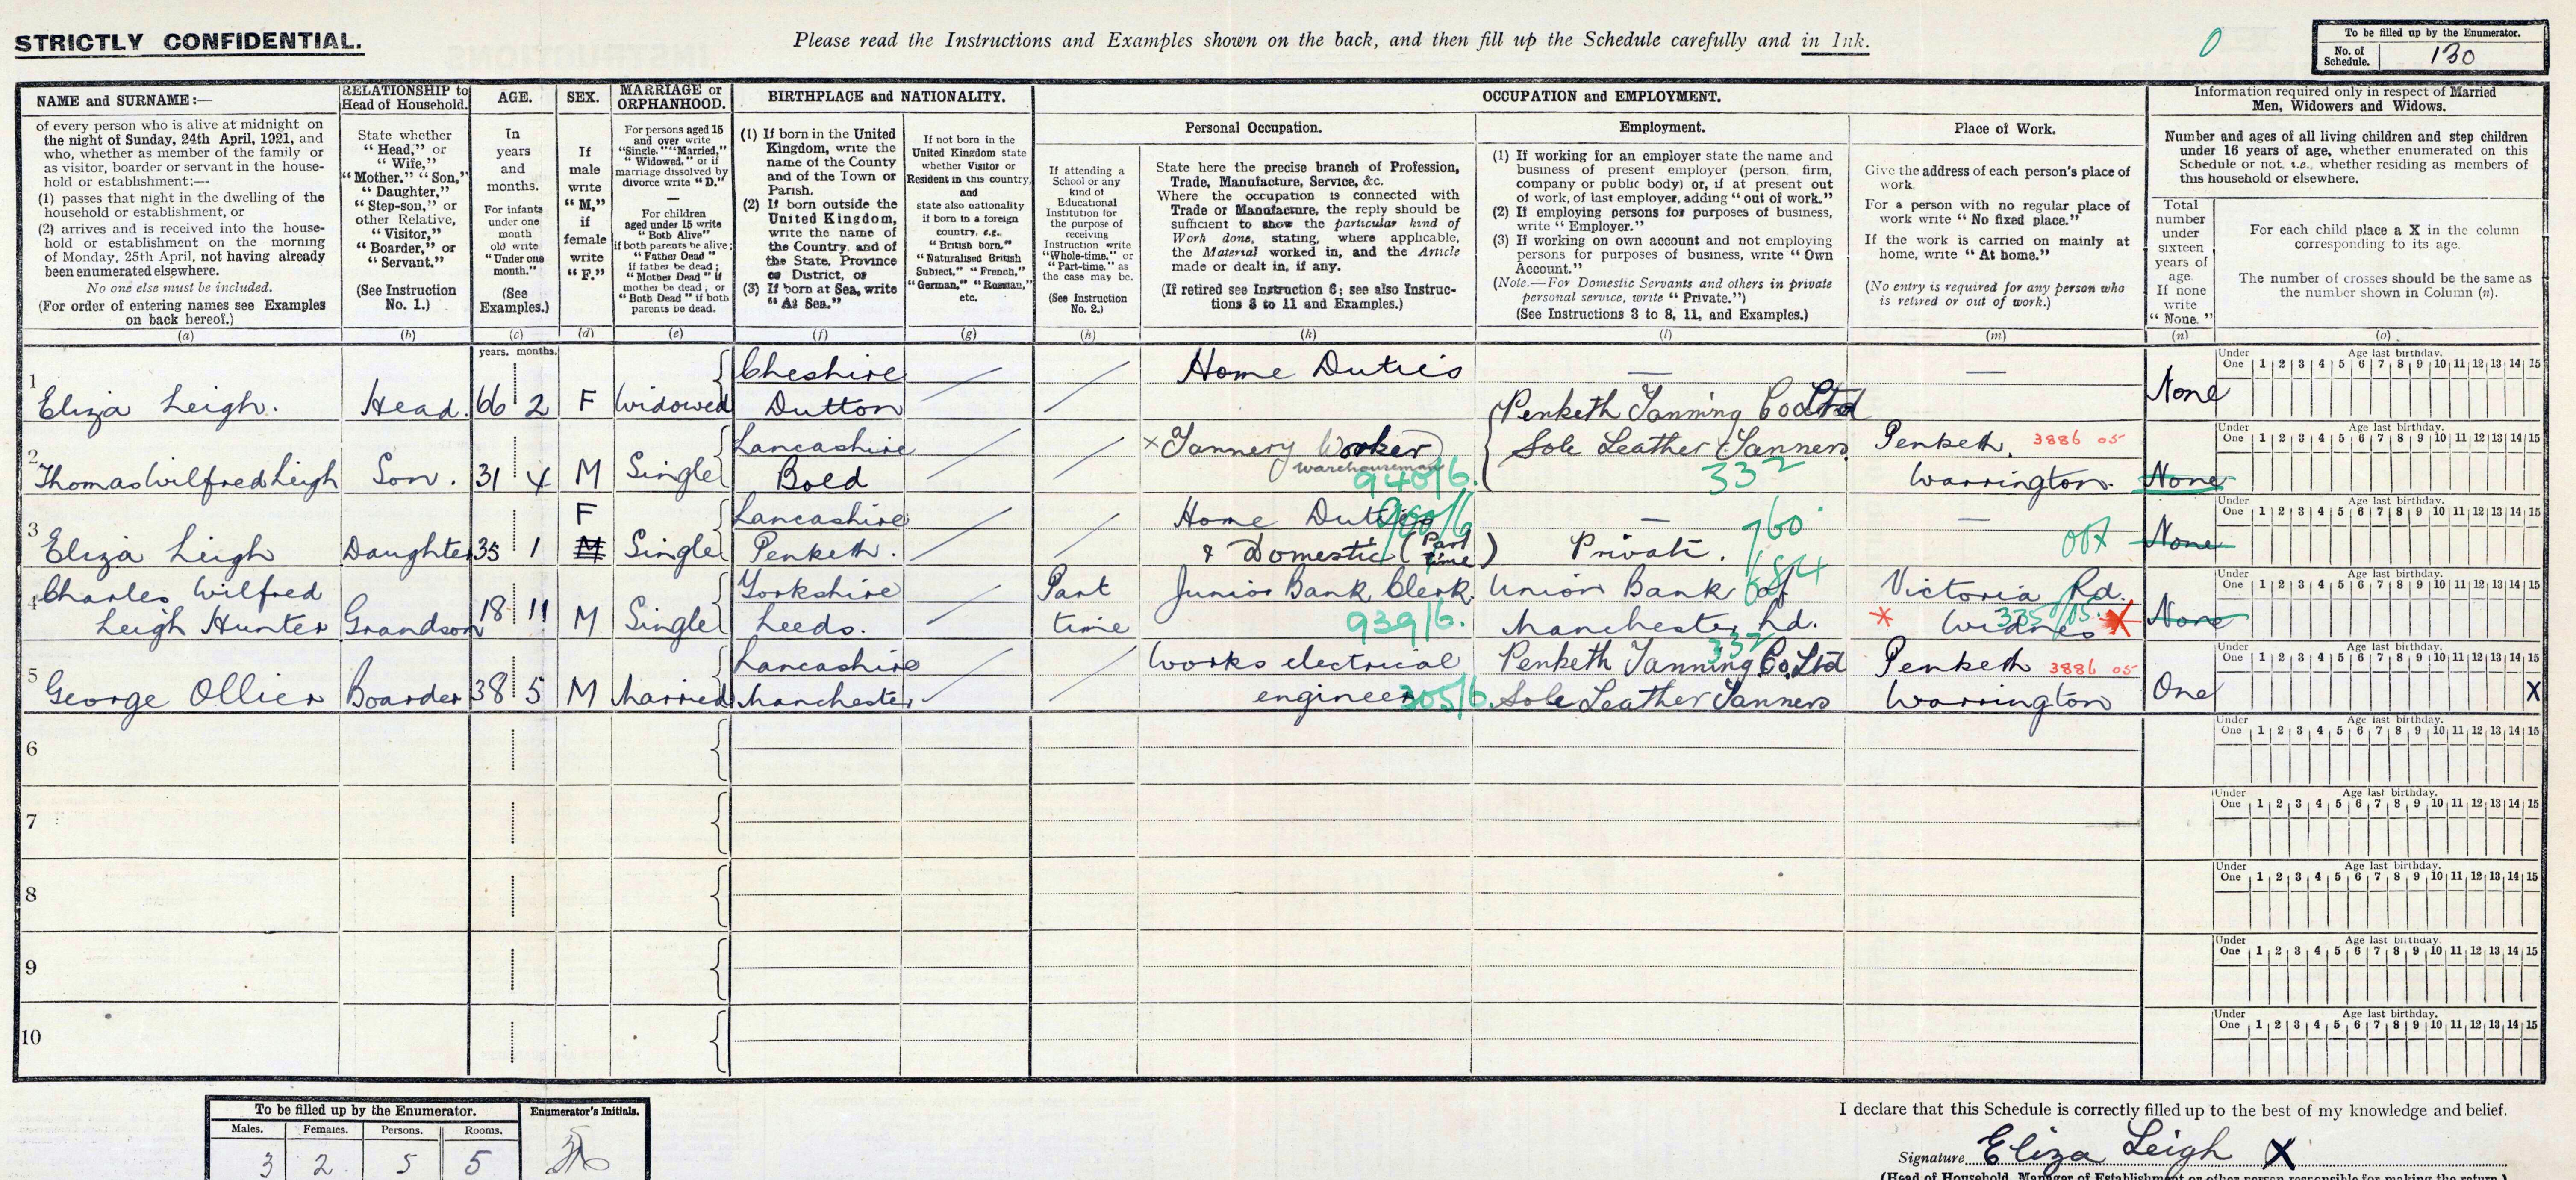 STRICTLY CONFIDENTIAL.
Please read the Instructions and Examples shown on the back, and then fill up the Schedule carefully and in Ink.
0
To be filled up by the Enumerator.
No. of Schedule. 130
NAME and SURNAME:—
of every person who is alive at midnight on
the night of Sunday, 24th April, 1921, and
who, whether as member of the family or
as visitor, boarder or servant in the house-
hold or establishment:—
(1) passes that night in the dwelling of the
household or establishment, or
(2) arrives and is received into the house-
hold or establishment on the morning
of Monday, 25th April, not having already
been enumerated elsewhere.
No one else must be included.
(For order of entering names see Examples
on back hereof.)
(a)
RELATIONSHIP to
Head of Household.
State whether
“Head,” or
“Wife,”
“Mother,” “Son,”
“Daughter,”
“Step-son,” or
other Relative,
“Visitor,”
“Boarder,” or
“Servant.”
(See Instruction
No. 1.)
(b)
AGE.
In
years
and
months.
For infants
under one
month
old write
“Under one
month.”
(See
Examples.)
(c)
SEX.
If
male
write
“M,”
if
female
write
“F.”
(d)
MARRIAGE or
ORPHANHOOD.
For persons aged 15
and over write
“Single,” “Married,”
“Widowed,” or if
marriage dissolved by
divorce write “D.”
—
For children
aged under 15 write
“Both Alive”
if both parents be alive;
“Father Dead”
if father be dead;
“Mother Dead” if
mother be dead; or
“Both Dead” if both
parents be dead.
(e)
BIRTHPLACE and NATIONALITY.
(1) If born in the United
Kingdom, write the
name of the County
and of the Town or
Parish.
(2) If born outside the
United Kingdom,
write the name of
the Country, and of
the State, Province
or District, or
(3) If born at Sea, write
“At Sea.”
(f)
If not born in the
United Kingdom state
whether Visitor or
Resident in this country,
and
state also nationality
if born in a foreign
country, e.g.,
“British born.”
“Naturalised British
Subject.” “French,”
“German,” “Russian,”
etc.
(g)
OCCUPATION and EMPLOYMENT.
If attending a
School or any
kind of
Educational
Institution for
the purpose of
receiving
Instruction write
“Whole-time,” or
“Part-time,” as
the case may be.
(See Instruction
No. 2.)
(h)
Personal Occupation.
State here the precise branch of Profession,
Trade, Manufacture, Service, &c.
Where the occupation is connected with
Trade or Manufacture, the reply should be
sufficient to show the particular kind of
Work done, stating, where applicable,
the Material worked in, and the Article
made or dealt in, if any.
(If retired see Instruction 6; see also Instruc-
tions 3 to 11 and Examples.)
(k)
Employment.
(1) If working for an employer state the name and
business of present employer (person, firm,
company or public body) or, if at present out
of work, of last employer, adding “out of work.”
(2) If employing persons for purposes of business,
write “Employer.”
(3) If working on own account and not employing
persons for purposes of business, write “Own
Account.”
(Note.—For Domestic Servants and others in private
personal service, write “Private.”)
(See Instructions 3 to 8, 11, and Examples.)
(l)
Place of Work.
Give the address of each person's place of
work.
For a person with no regular place of
work write “No fixed place.”
If the work is carried on mainly at
home, write “At home.”
(No entry is required for any person who
is retired or out of work.)
(m)
Information required only in respect of Married
Men, Widowers and Widows.
Number and ages of all living children and step children
under 16 years of age, whether enumerated on this
Schedule or not, i.e., whether residing as members of
this household or elsewhere.
Total
number
under
sixteen
years of
age.
If none
write
“None.”
(n)
For each child place a X in the column
corresponding to its age.
The number of crosses should be the same as
the number shown in Column (n).
(o)
years. months.
1 Eliza Leigh. Head. 66 2 F Widowed Cheshire Dutton Home Duties — — None
Under One Age last birthday. 1 2 3 4 5 6 7 8 9 10 11 12 13 14 15
2 Thomas Wilfred Leigh Son. 31 4 M Single Lancashire Bold × Tannery Worker warehouseman 940/6. Penketh Tanning Co Ltd Sole Leather Tanners 332 Penketh. 3886 05 Warrington. None
Under One Age last birthday. 1 2 3 4 5 6 7 8 9 10 11 12 13 14 15
3 Eliza Leigh Daughter 35 1 F M Single Lancashire Penketh. Home Duties 900/6 & Domestic (Part time) — Private. 760 — None
Under One Age last birthday. 1 2 3 4 5 6 7 8 9 10 11 12 13 14 15
4 Charles Wilfred Leigh Hunter Grandson 18 11 M Single Yorkshire Leeds. Part time Junior Bank Clerk. 939/6. Union Bank of 684 Manchester Ld. Victoria Rd. Widnes 335/05. None
Under One Age last birthday. 1 2 3 4 5 6 7 8 9 10 11 12 13 14 15
5 George Ollier Boarder 38 5 M Married Lancashire Manchester Works electrical engineer 305/6. Penketh Tanning Co. Ltd 332 Sole Leather Tanners Penketh 3886 05 Warrington One X
Under One Age last birthday. 1 2 3 4 5 6 7 8 9 10 11 12 13 14 15
6
Under One Age last birthday. 1 2 3 4 5 6 7 8 9 10 11 12 13 14 15
7
Under One Age last birthday. 1 2 3 4 5 6 7 8 9 10 11 12 13 14 15
8
Under One Age last birthday. 1 2 3 4 5 6 7 8 9 10 11 12 13 14 15
9
Under One Age last birthday. 1 2 3 4 5 6 7 8 9 10 11 12 13 14 15
10
Under One Age last birthday. 1 2 3 4 5 6 7 8 9 10 11 12 13 14 15
To be filled up by the Enumerator.
Enumerator's Initials.
Males. Females. Persons. Rooms.
3 2 5 5
I declare that this Schedule is correctly filled up to the best of my knowledge and belief.
Signature Eliza Leigh X
(Head of Household, Manager of Establishment or other person responsible for making the return.)